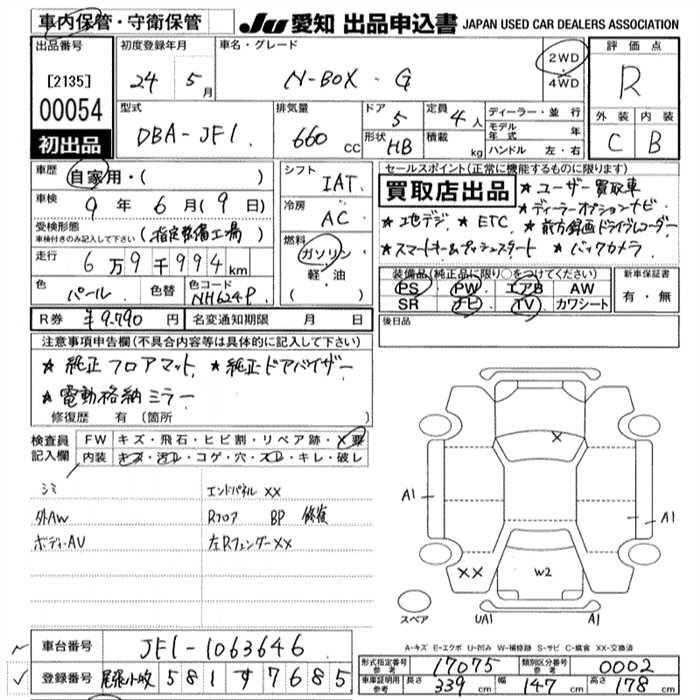 車内保管・守衛保管 JU 愛知 出品申込書 JAPAN USED CAR DEALERS ASSOCIATION
出品番号 [2135] 00054 初出品
初度登録年月 24 年 5 月
車名・グレード N-BOX . G
2WD
4WD
評価点 R
外装 C 内装 B
型式 DBA-JF1
排気量 660 cc
ドア 5
形状 HB
定員 4 人
積載 kg
ディーラー・並行
モデル年式 年
ハンドル 左・右
車歴 自家用・( )
車検 9 年 6 月 ( 9 日)
受検形態 車検付きのみ記入して下さい (指定整備工場)
走行 6 万 9 千 994 km
色 パール 色替 色コード NH624P
シフト IAT
冷房 AC
燃料 ガソリン
軽・油
( )
セールスポイント(正常に機能するものに限ります)
買取店出品 ★ユーザー買取車
★ディーラーオプションナビ
★地デジ ★ETC ★前方録画ドライブレコーダー
★スマートキー&プッシュスタート ★バックカメラ
装備品(純正品に限り○をつけてください)
PS PW エアB AW
SR ナビ TV カワシート
新車保証書
有・無
後日品
R券 ¥9.790 円 名変通知期限 月 日
注意事項申告欄(不具合内容等は具体的に記入して下さい)
★純正フロアマット ★純正ドアバイザー
★電動格納ミラー
修復歴 有 (箇所
検査員記入欄
FW キズ・飛石・ヒビ割・リペア跡・X要
内装 キズ・汚レ・コゲ・穴・スレ・キレ・破レ
シミ エンドパネル XX
外AW Rフロア BP 修復
ボディーAU 左Rフェンダー XX
X
A1 A1
XX W2
スペア UA1 A1
A-キズ E-エクボ U-凹み W-補修跡 S-サビ C-腐食 XX-交換済
車台番号 JF1-1063646
登録番号 尾張小牧 581 す 7685
形式指定番号 参考 17075 類別区分番号 参考 0002
車庫証明用 参考 長さ 339 cm 幅 147 cm 高さ 178 cm